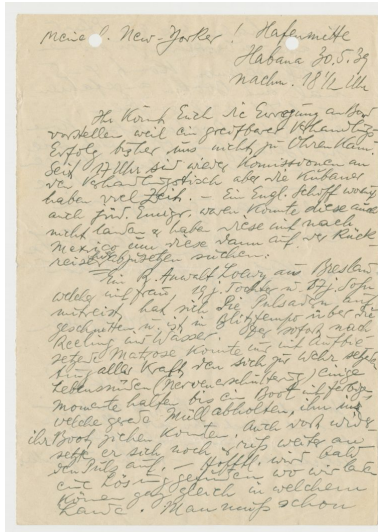 meine l. New-Yorker! Hafenmitte
Habana 30.5.39
nachm. 18 1/2 Uhr
Ihr könnt Euch die Erregung an Bord
vorstellen weil ein greifbarer Verhandlungs
Erfolg bisher uns nicht zu Ohren kam.
Seit 17 Uhr sind wieder Komissionen an
den Verhandlungstisch aber die Kubaner
haben viel Zeit. - Ein Engl. Schiff worauf
auch jüd. Emigr. waren konnte diese auch
nicht landen er habe diese mit nach
Mexico um diese dann auf der Rück-
reise abzusetzen suchen.
Ein R. Anwalt Loewy aus Breslau
welcher mit Frau 19 j. Tochter u. 17 j. Sohn
mitreist, hat sich die Pulsadern auf
geschnitten u. ist in Blitztempo über die
Reeling ins Wasser. Der sofort nach
setzende Matrose konnte ihn mit Aufbie-
tung aller Kraft den sich zu Wehr setzenden
Lebensmüden (Nervenerschütterung) einige
Momente halten bis ein Boot mit farbigen
welche gerade Müll abholten, ihn in
ihr Boot ziehen konnten. Auch dort wieder
setzte er sich noch u. riß weiter an
den Puls auf. - Hofftl. wird bald
eine Lösung gefunden wo wir landen
können ganz gleich in welchem
Lande. Man muß schon